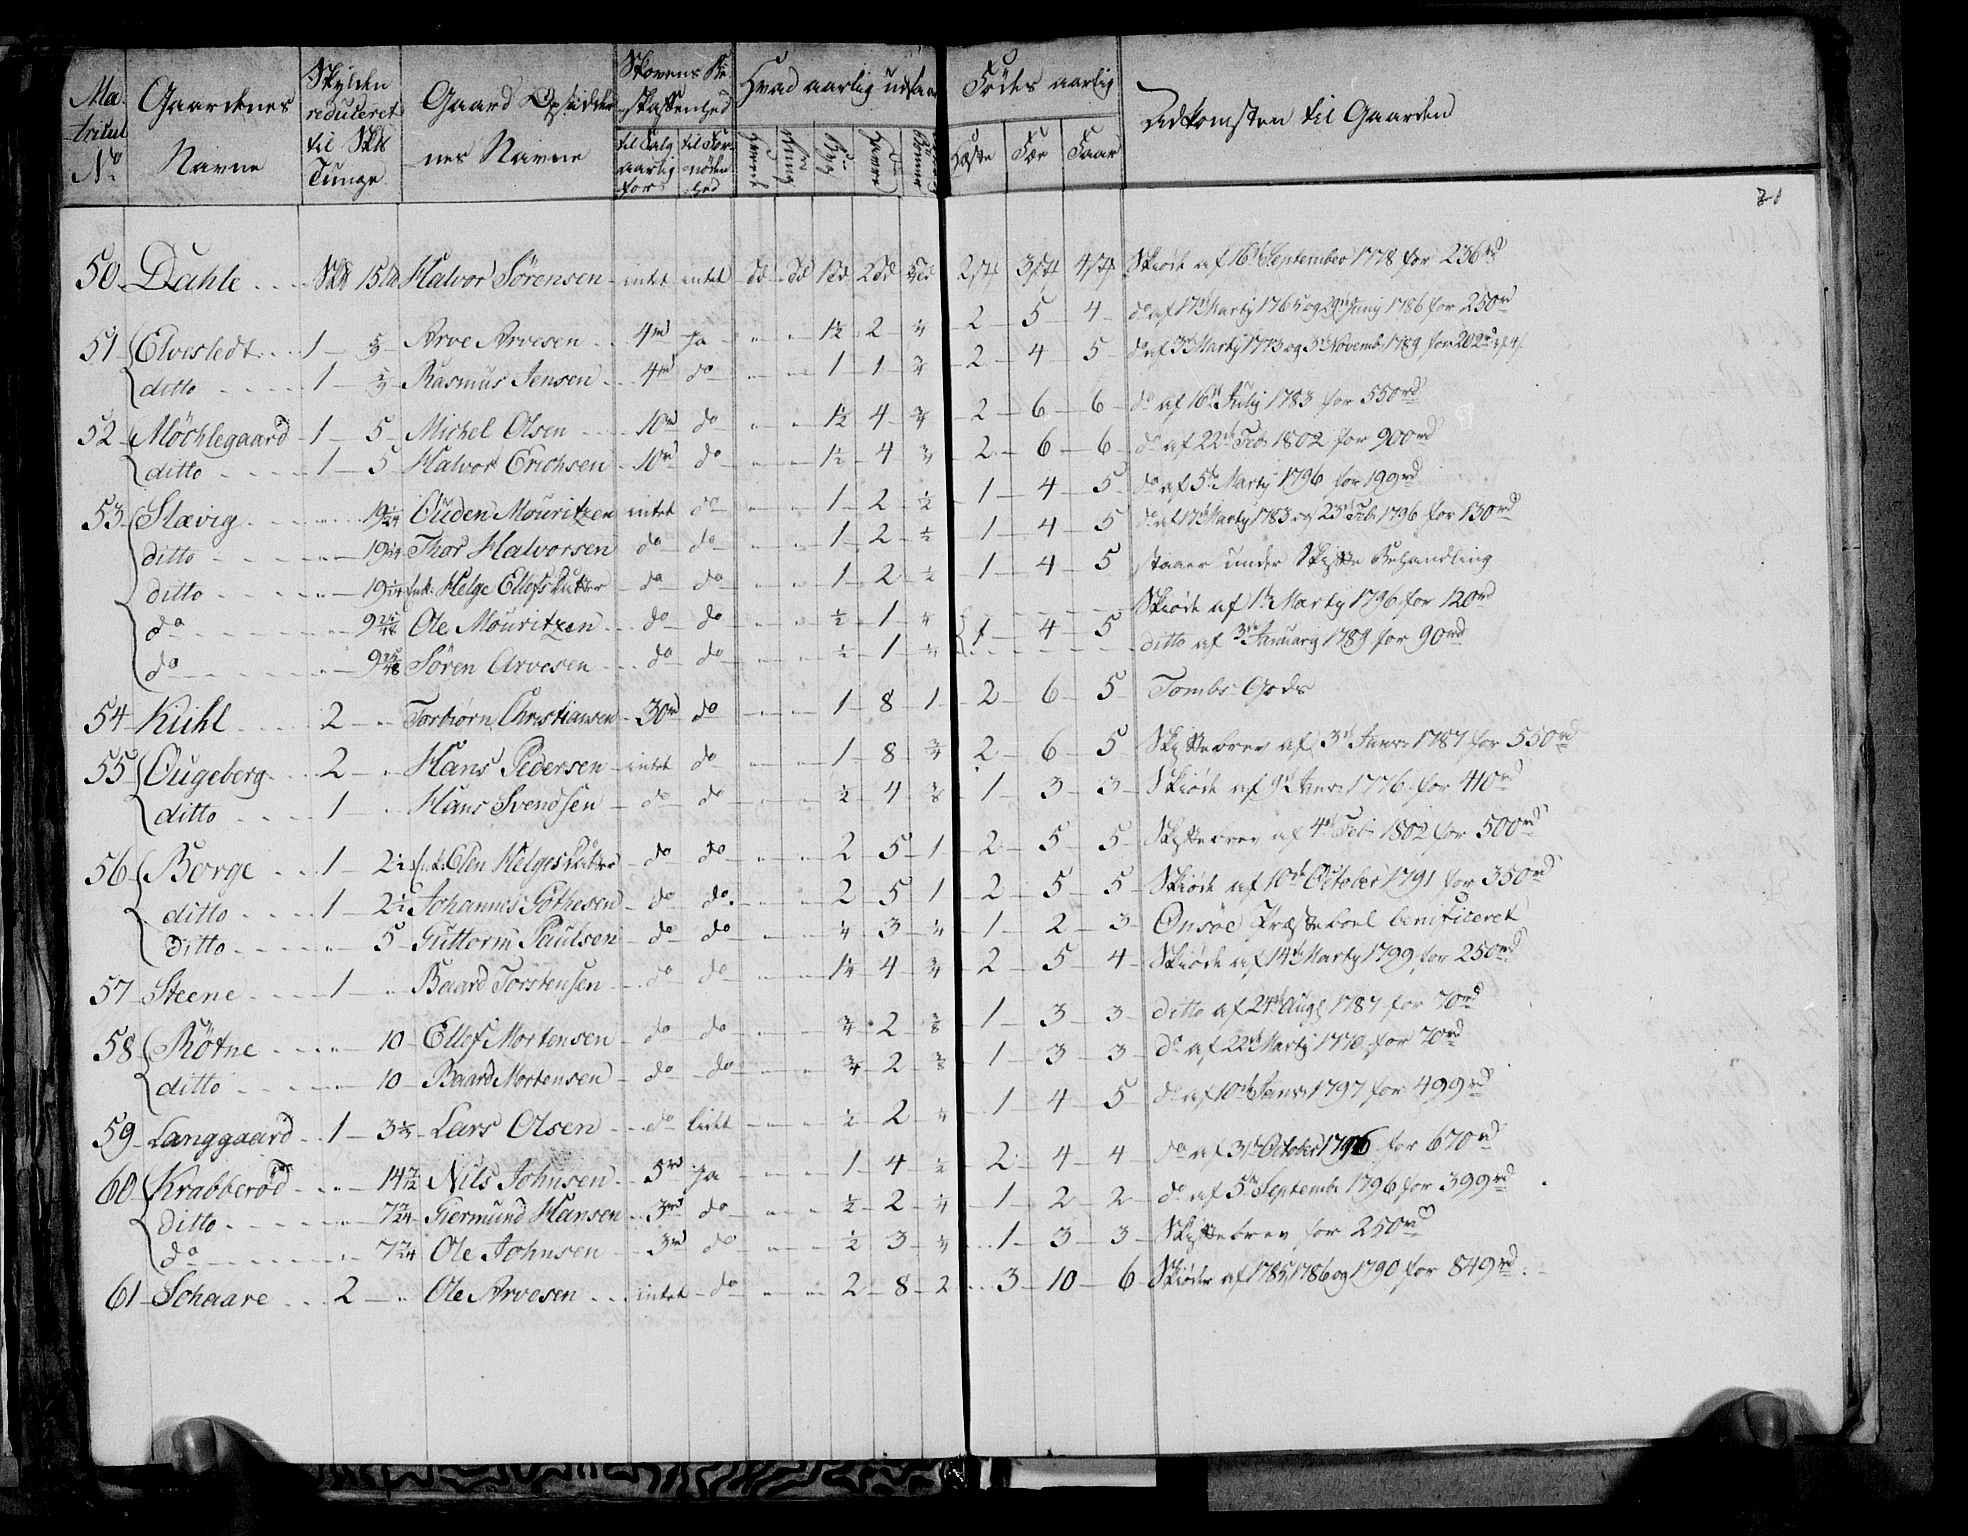 Matricul No | Gaardenes Navne | Skylden reduceret til Skl Tunge | Gaard Opsidder nes Navne | Skovens Be skaffenhed: til Salg aarlig for, til For nøden hed | Hvad aarlig udsaaes: Byg, Havre | Fødes aarlig: Heste, Fæe, Faar | Adkomsten til Gaarden
50 Dahle Skl 15 Halvor Sörensen intet intet 2 3 4 Skiöde af 16d September 1778 for 236rd
51 Elvestedt 1 Arve Arvesen 4rd Ja 1½ 2 ¼ 2 5 4 do af 17de Marty 1765 og 29de Juny 1786 for 250rd
ditto 1 Rasmus Jensen 4rd do 1 1 ¾ 2 4 5 do af 3de Marty 1773 og 3de Novemb 1789 for 202rd
52 Möchlegaard 1 5 Michel Olsen 10rd do 1½ 4 ¾ 2 6 6 do af 16de July 1783 for 550rd
ditto 1 5 Halvor Erichsen 10rd do 1½ 4 ¾ 2 6 6 do af 22de Feb 1802 for 900rd
53 Slævig 19 1/24 Ouden Mouritzen intet do 1 2 ½ 1 4 5 do af 5te Marty 1796 for 199rd
ditto 19 1/24 Thor Halvorsen do do 1 2 ½ 1 4 5 do af 17de Marty 1783 og 23de Feb 1796 for 130rd
ditto 19 1/24 Enk. Helge Ellefs datter do do 1 2 ½ 1 4 5 staaer under Skifte Behandling
do 9 25/48 Ole Mouritzen do do ½ 1 ¼ 1 4 5 Skiöde af 1de Marty 1796 for 120rd
do 9 25/48 Sören Arvesen do do ½ 1 ¼ ditto af 3de January 1789 for 90rd
54 Kuhl 2 Torbiörn Christiansen 30rd do 1 8 1 2 6 5 Tombs Gods
55 Ougeberg 2 Hans Pedersen intet do 1 8 ¾ 2 6 5 Skiftebrev af 3de Janr 1787 for 550rd
ditto 1 Hans Svendsen do do ½ 4 3/8 1 3 3 Skiöde af 9de Janr 1776 for 410rd
56 Borge 1 2½ Enk. Elen Helgesdatter do do 2 5 1 2 5 5 Skiftebrev af 4de Feb 1802 for 500rd
ditto 1 2½ Johannes Gothesen do do 2 5 1 2 5 5 Skiöde af 10de October 1791 for 350rd
ditto 5 Guttorm Paulsen do do ¼ 3 ¼ 1 2 3 Onsöe Præsteboel benificeret
57 Steene 1 Baard Torstensen do do 1¼ 4 ¾ 2 5 4 Skiöde af 14de Marty 1799 for 250rd
58 Rötne 10 Ellef Mortensen do do ¾ 2 3/8 1 3 3 ditto af 24de Aug 1787 for 70rd
ditto 10 Baard Mortensen do do ¾ 2 3/8 1 3 3 do af 22de Marty 1770 for 70rd
59 Langgaard 1 3 Lars Olsen do lidet ½ 2 ¼ 1 4 5 do af 10de Janr 1797 for 499rd
60 Krabberöd 14 7/12 Nils Johnsen 5rd Ja 1 4 ½ 2 4 4 do af 31de October 1796 for 670rd
ditto 7 7/24 Giermund Hansen 3rd do ½ 2 ¼ 1 2 2 do af 5te Septembr 1796 for 399rd
do 7 7/24 Ole Johnsen 3rd do ½ 3 ¼ 1 3 3 Skiftebrev for 250rd
61 Schaare 2 Ole Arvesen intet do 2 8 2 3 10 6 Skiöder af 1785, 1786 og 1790 for 849rd